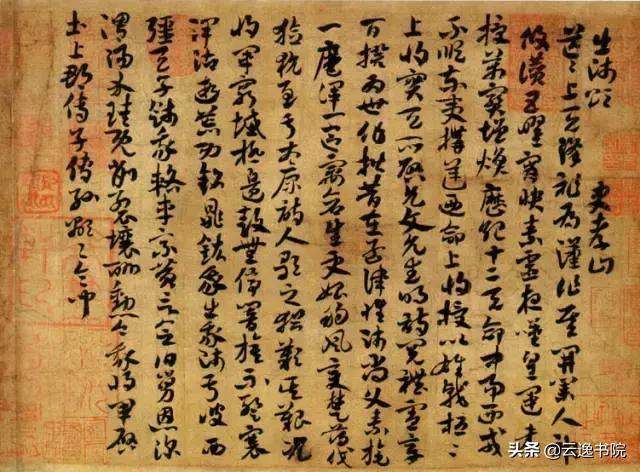 出師頌 史孝山
茫茫上天降祚為漢作基開業人神
攸讚五曜霄映素靈夜歎皇運來
授萬寶增煥歷紀十二天命中易西戎
不順東夷構逆乃命上將授以雄戟桓桓
上將寔天所啟允文允武明詩閱禮憲章
百揆為世作楷昔在孟津惟師尚父素旄
一麾渾一區宇蒼生更始朔風變楚薄伐
獫狁至于太原詩人歌之猶歎其艱況
我將軍窮城極邊鼓無停響旗不蹔褰
澤沾遐荒功銘鼎鉉我出我師于彼西
疆天子餞我輅車乘黃言念伯舅恩深
渭陽介珪既削裂壤酬勳今我將軍啟
土上郡傳子傳孫顯顯令問
头条@云逸书院